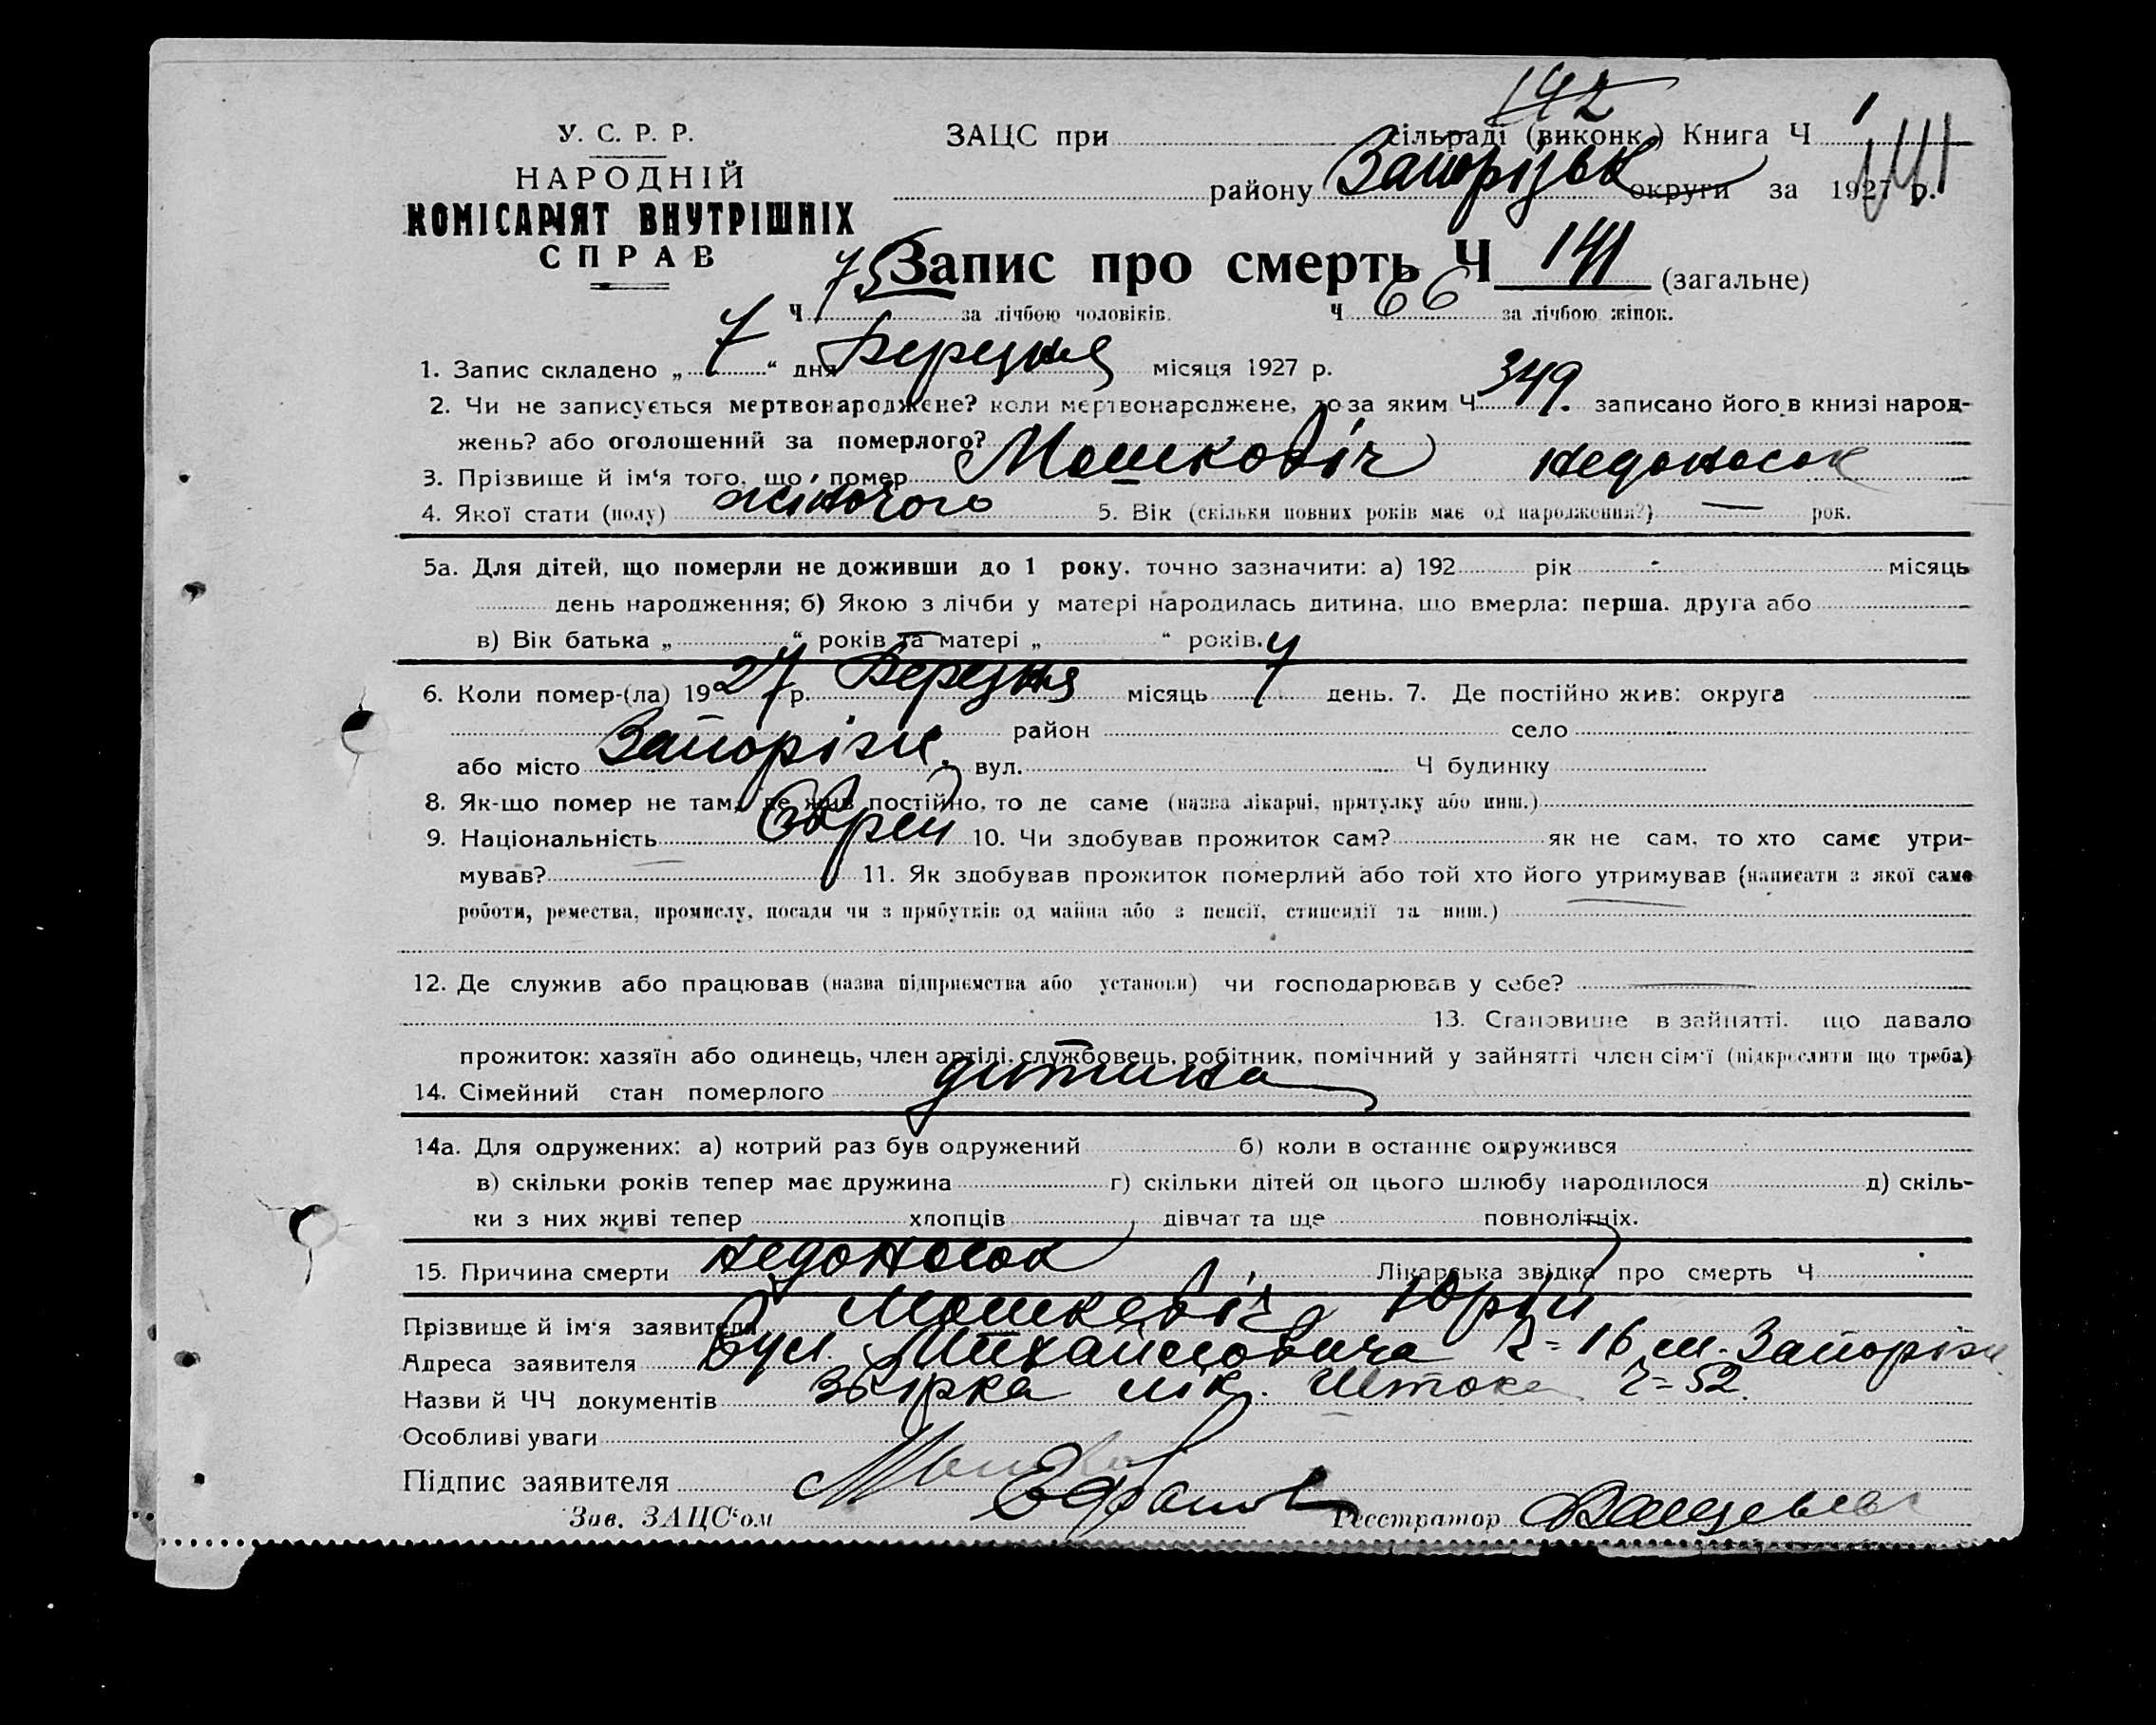 192
У. С. Р. Р.
ЗАЦС при сільраді (виконк.) Книга Ч 1
141
НАРОДНІЙ
району Запорізьк округи за 1927 р.
КОМІСАРІЯТ ВНУТРІШНІХ
СПРАВ
Запис про смерть Ч 141 (загальне)
Ч 75 за лічбою чоловіків. Ч 66 за лічбою жінок.
1. Запис складено „ 7 “ дня Березня місяця 1927 р.
2. Чи не записується мертвонароджене? коли мертвонароджене, то за яким Ч 349. записано його в книзі народ-
жень? або оголошений за померлого?
3. Прізвище й ім‘я того, що помер Мошковіч недоносок
4. Якої стати (полу) жіночого 5. Вік (скільки повних років має од народження?) — рок.
5а. Для дітей, що померли не доживши до 1 року, точно зазначити: а) 192 рік місяць
день народження; б) Якою з лічби у матері народилась дитина, що вмерла: перша, друга або
в) Вік батька „ “ років та матері „ “ років.
6. Коли помер-(ла) 1927 р. Березня місяць 7 день. 7. Де постійно жив: округа
район село
або місто Запоріж. вул. Ч будинку
8. Як-що помер не там, де жив постійно, то де саме (назва лікарні, притулку або инш.)
9. Національність Єврей 10. Чи здобував прожиток сам? як не сам, то хто саме утри-
мував? 11. Як здобував прожиток померлий або той хто його утримував (написати з якої саме
роботи, ремества, промислу, посади чи з прибутків од майна або з пенсії, стипендії та инш.)
12. Де служив або працював (назва підприємства або установи) чи господарював у себе?
13. Становище в зайнятті, що давало
прожиток: хазяїн або одинець, член артілі, службовець, робітник, помічний у зайнятті член сім‘ї (підкреслити що треба)
14. Сімейний стан померлого дитина
14а. Для одружених: а) котрий раз був одружений б) коли в останнє одружився
в) скільки років тепер має дружина г) скільки дітей од цього шлюбу народилося д) скіль-
ки з них живі тепер хлопців, дівчат та ще повнолітніх.
15. Причина смерти недоносок Лікарська звідка про смерть Ч
Прізвище й ім‘я заявителя Мошковіч Юрій
Адреса заявителя вул. Ч= 16 м. Запоріж
Назви й ЧЧ документів лік. Штока Ч= 52.
Особливі уваги
Підпис заявителя
Зав. ЗАЦС‘ом Реєстратор